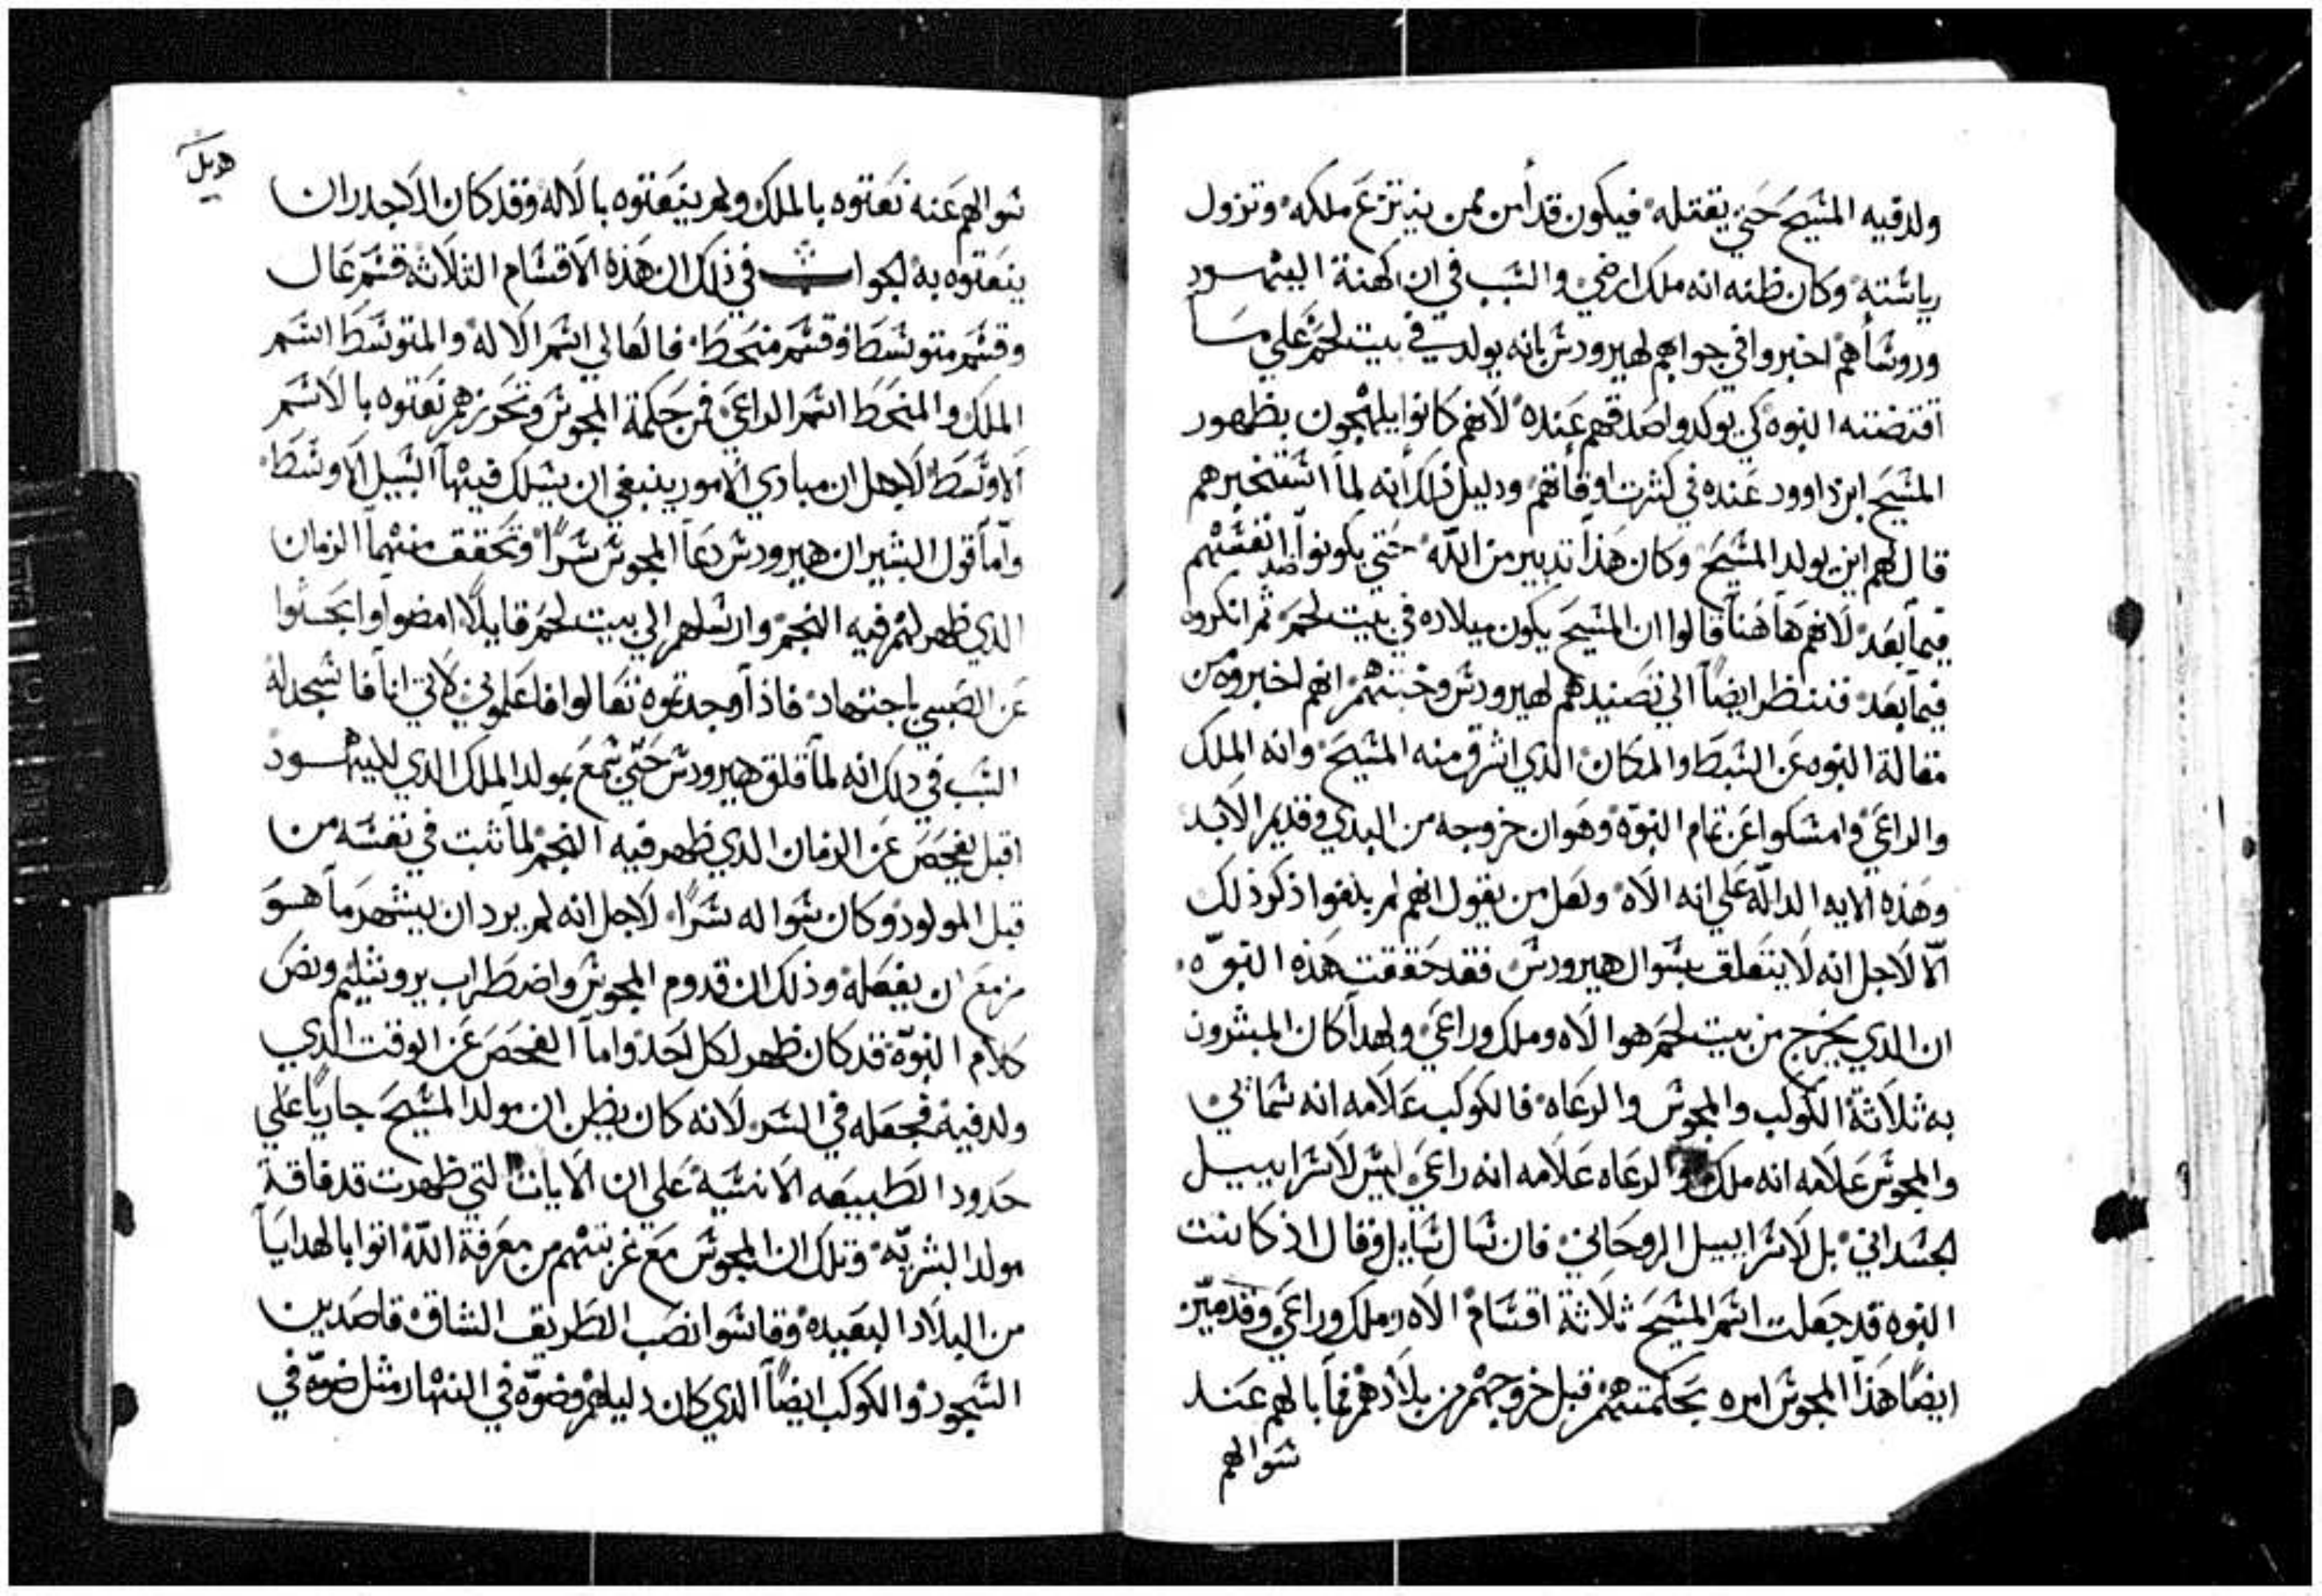 ولد فيه المسيح حتي يقتله فيكون قد أمن ممن ينتزع ملكه وتزول
رياسته وكان ظنه انه ملك ارضي والسبب في ان كهنة اليهود
وروسأهم اخبروا في جوابهم لهيرودس بانه يولد في بيت لحم علي مسا
اقتضته النبوه كي يوكدوا صدقهم عنده لانهم كانوا يلهجون بظهور
المسيح ابن داوود عنده في كثرت اوقاتهم ودليل ذلك أنه لما استخبرهم
قال لهم اين يولد المسيح وكان هذا تدبير من الله حتي يكونوا ضد انفسهم
فيما بعد لانهم هاهنا قالوا ان المسيح يكون ميلاده في بيت لحم ثم انكروه
فيما بعد فننظر ايضاً الي تصنيدهم لهيرودس وخبثهم انهم اخبروه من
مقالة النبوه عن السبط والمكان الذي اشرق منه المسيح وانه الملك
والراعي وامسكوا عن تمام النبوّة وهو ان خروجه من البدي وقديم الابد
وهذه الايه الدالّه علي انه الاه ولعل من يقول انهم لم يلغوا ذكر ذلك
الّا لاجل انه لا يتعلق بسوال هيرودس فقد حققت هذه النبوّه
ان الذي يخرج من بيت لحم هو الاه وملك وراعي ولهدا كان المبشرون
به ثلاثة الكوكب والمجوس والرعاه فالكوكب علامه انه سمائي
والمجوس علامه انه ملك والرعاه علامه انه راعي ليس لاسراييل
الجسداني بل لاسراييل الروحاني فان سال سايل وقال اذ كانت
النبوه قد جعلت اسم المسيح ثلاثة اقسام الاه وملك وراعي وقد ميّز
ايضاً هذا المجوس امره بحكمتهم قبل خروجهم من بلادهم فما بالهم عند
سوالهم
سوالهم عنه نعتوه بالملك ولم ينعتوه بالاله وقد كان الاجدر ان
ينعتوه به الجواب في ذلك ان هذه الاقسام الثلاثة قسم عال
وقسم متوسط وقسم منحط فالعالي اسم الاله والمتوسط اسم
الملك والمنحط اسم الراعي فمن حكمة المجوس وتحررهم نعتوه بالاسم
الاوسط لاجل ان مبادي الامور ينبغي ان يسلك فيها السبيل الاوسط
وأما قول البشير ان هيرودس دعا المجوس سرًا وتحقق منهما الزمان
الذي ظهر لهم فيه النجم وارسلهم الي بيت لحم قايلًا امضوا وابحثوا
عن الصبي باجتهاد فاذا وجدتموه تعالوا فاعلموني لاتي انا فاسجد له
السبب في دلك انه لما قلق هيرودس حتي سمع بمولد الملك الدي لليهود
اقبل يفحص عن الزمان الذي ظهر فيه النجم لما ثبت في نفسه من
قبل المولود وكان سواله سرًا لاجل انه لم يرد ان يشهر ما هو
مزمع ان يفعله وذلك ان قدوم المجوس واضطراب يروشليم ونص
كلام النبوّة قد كان ظهر لكل احد واما الفحص عن الوقت الدي
ولد فيه فجعله في السر لانه كان يظن ان مولد المسيح جارياً علي
حدود الطبيعه الانسيه علي ان الايات التي ظهرت قد فاقة
مولد البشريّه وتلك ان المجوس مع غربتهم من معرفة اللّه اتوا بالهدايا
من البلاد البعيده وقاسوا نصب الطريق الشاق قاصدين
السجود والكوكب ايضاً الذي كان دليلهم وضوّه في النهار مثل ضوّه في